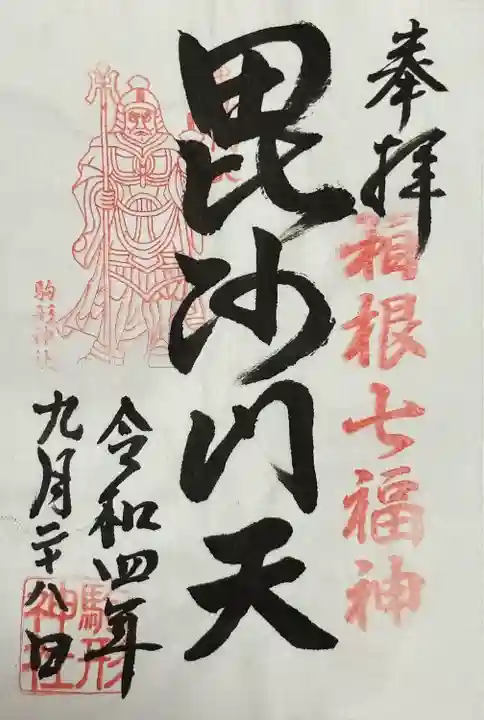 奉拝
箱根七福神
毘沙門天
駒形神社
令和四年
九月二十八日
駒形
神社